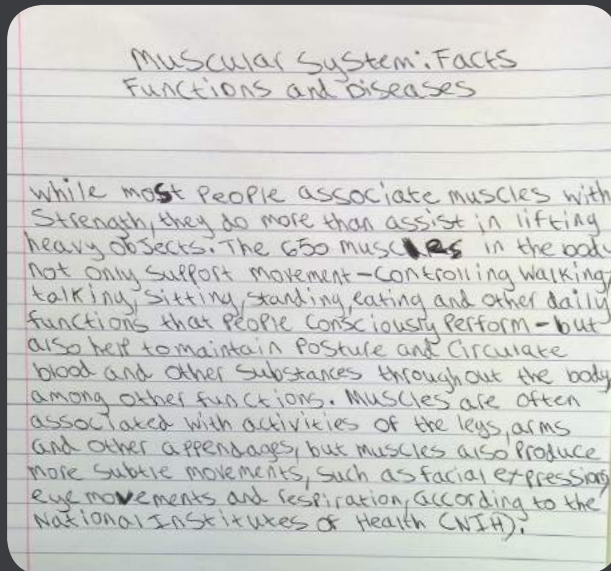 Muscular System: Facts
Functions and Diseases
while most people associate muscles with
Strength, they do more than assist in lifting
heavy objects. The 650 muscles in the body
not only support movement - controlling walking,
talking, sitting, standing, eating and other daily
functions that people consciously perform - but
also help to maintain posture and circulate
blood and other substances throughout the body,
among other functions. Muscles are often
associated with activities of the legs, arms
and other appendages, but muscles also produce
more subtle movements, such as facial expressions,
eye movements and respiration, according to the
National Institutes of Health (NIH).